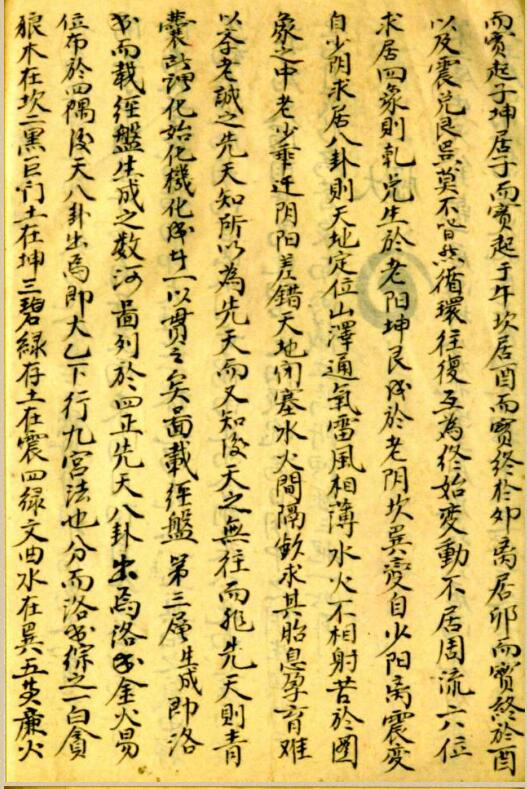 而實起子坤居子而實起于午坎居酉而實終於卯离居卯而實終於酉
以及震兑艮巽莫不皆然循環往復互為終始变動不居周流六位
求居四象則乾兑生於老阳坤艮成於老阴坎巽变自少阳离震变
自少阴求居八卦則天地定位山澤通氣雷風相薄水火不相射苦於圖
象之中老少乖迕阴阳差錯天地闭塞水火間隔欲求其胎息孕育难
以李老誠之先天知所以為先天而又知後天之無往而非先天則青
囊所謂化始化機化成廿一以貫之矣啚載经盤第三層生成即洛
书而载经盤生成之数河啚列於四正先天八卦出焉洛书金火易
位布於四隅後天八卦出焉即大乙下行九宫法也分而洛书综之一白貪
狼木在坎二黑巨门土在坤三碧緑存土在震四緑文曲水在巽五黄廉火